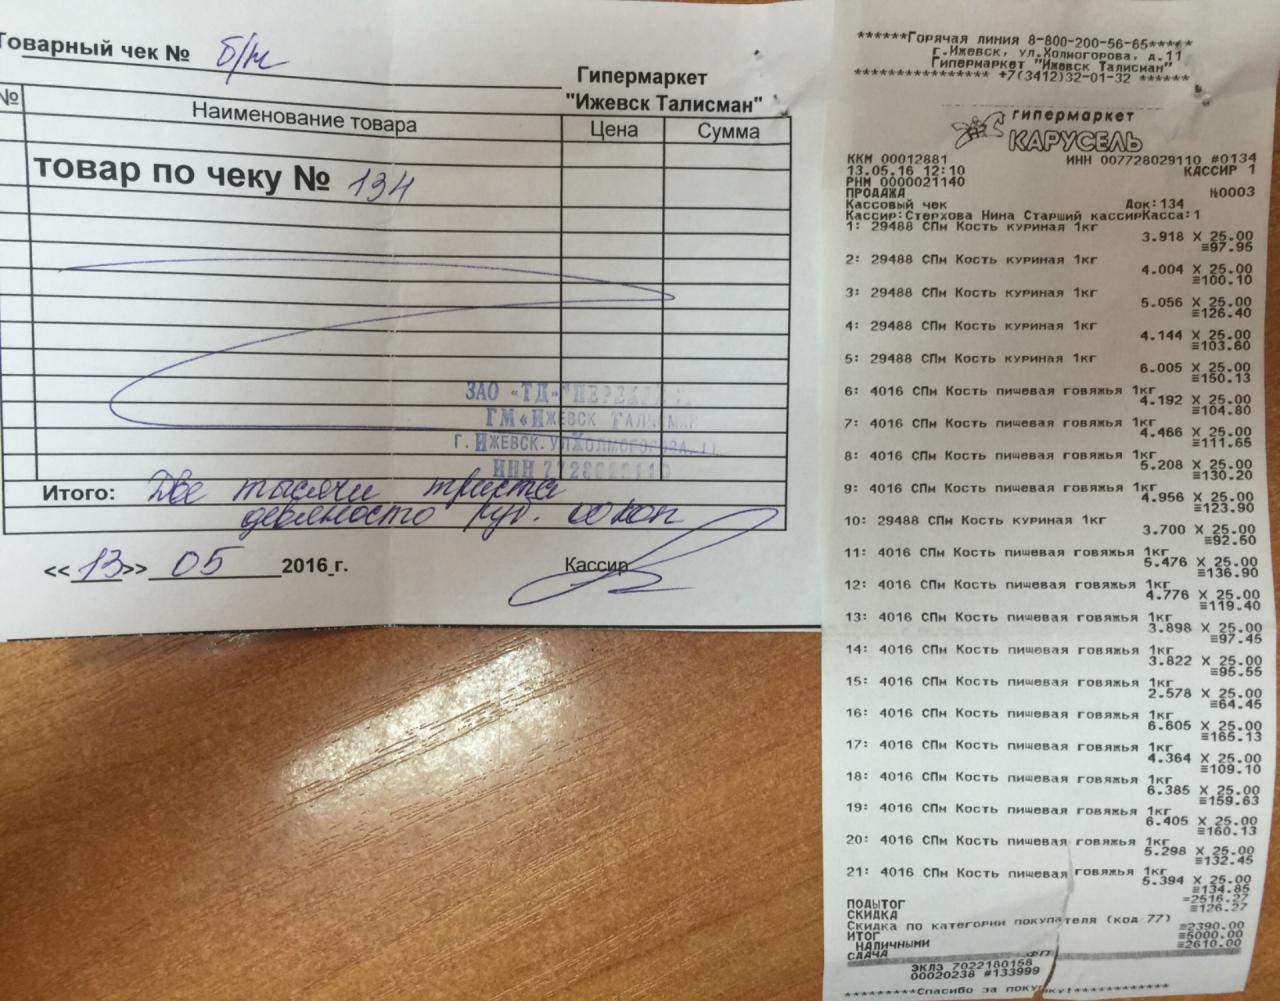 Товарный чек № б/н
Гипермаркет
"Ижевск Талисман"
№ Наименование товара Цена Сумма
товар по чеку № 134
ЗАО «ТД»
ГМ «Ижевск Талисман
г. Ижевск. ул Холмогорова, 11
ИНН
Итого: Две тысячи триста
девяносто руб. 00 коп
<<13>> 05 2016 г.
Кассир
******Горячая линия 8-800-200-56-65*****
г.Ижевск, ул.Холмогорова, д.11
Гипермаркет "Ижевск Талисман"
**************** +7(3412)32-01-32 ******
гипермаркет
КАРУСЕЛЬ
ККМ 00012881 ИНН 007728029110 #0134
13.05.16 12:10 КАССИР 1
РНМ 0000021140
ПРОДАЖА №0003
Кассовый чек Док:134
Кассир:Стерхова Нина Старший кассирКасса:1
1: 29488 СПн Кость куриная 1кг
3.918 X 25.00
=97.95
2: 29488 СПн Кость куриная 1кг
4.004 X 25.00
=100.10
3: 29488 СПн Кость куриная 1кг
5.056 X 25.00
=126.40
4: 29488 СПн Кость куриная 1кг
4.144 X 25.00
=103.60
5: 29488 СПн Кость куриная 1кг
6.005 X 25.00
=150.13
6: 4016 СПн Кость пищевая говяжья 1кг
4.192 X 25.00
=104.80
7: 4016 СПн Кость пищевая говяжья 1кг
4.466 X 25.00
=111.65
8: 4016 СПн Кость пищевая говяжья 1кг
5.208 X 25.00
=130.20
9: 4016 СПн Кость пищевая говяжья 1кг
4.956 X 25.00
=123.90
10: 29488 СПн Кость куриная 1кг
3.700 X 25.00
=92.50
11: 4016 СПн Кость пищевая говяжья 1кг
5.476 X 25.00
=136.90
12: 4016 СПн Кость пищевая говяжья 1кг
4.776 X 25.00
=119.40
13: 4016 СПн Кость пищевая говяжья 1кг
3.898 X 25.00
=97.45
14: 4016 СПн Кость пищевая говяжья 1кг
3.822 X 25.00
=95.55
15: 4016 СПн Кость пищевая говяжья 1кг
2.578 X 25.00
=64.45
16: 4016 СПн Кость пищевая говяжья 1кг
6.605 X 25.00
=165.13
17: 4016 СПн Кость пищевая говяжья 1кг
4.364 X 25.00
=109.10
18: 4016 СПн Кость пищевая говяжья 1кг
6.385 X 25.00
=159.63
19: 4016 СПн Кость пищевая говяжья 1кг
6.405 X 25.00
=160.13
20: 4016 СПн Кость пищевая говяжья 1кг
5.298 X 25.00
=132.45
21: 4016 СПн Кость пищевая говяжья 1кг
5.394 X 25.00
=134.85
ПОДЫТОГ =2516.27
СКИДКА =126.27
Скидка по категории покупателя (код 77)
ИТОГ =2390.00
НАЛИЧНЫМИ =5000.00
СДАЧА =2610.00
ФП
ЭКЛЗ 7022180158
00020238 #133999
********Спасибо за покупку!************